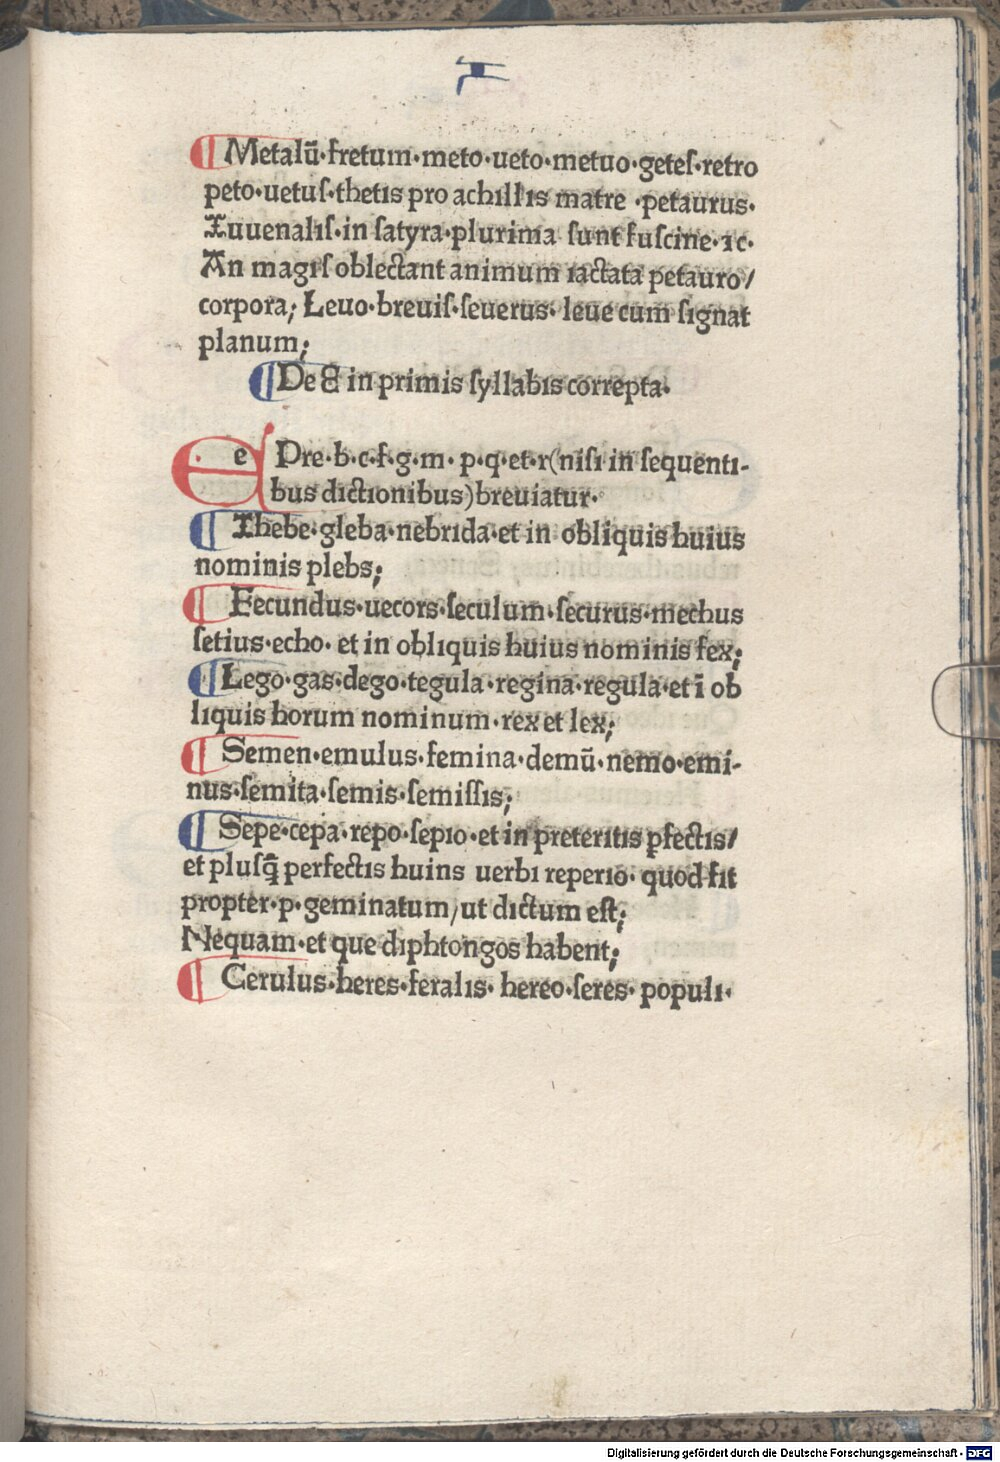 ¶ Metalū·fretum·meto·ueto·metuo·geteſ·retro
peto·uetuſ·thetis pro achillis matre ·petaurus·
Iuuenaliſ·in ſatyra·plurima ſunt fuſcine·⁊c·
An magiſ oblectant animum iactata petauro/
corpora; Leuo·breuiſ·ſeuerus· leue cum ſignat
planum;
¶ De E in primis ſyllabis correpta·
e Pre·b·c·f·g·m· p·q·et·r(niſi in ſequenti-
bus dictionibus)breuiatur·
¶ Thebe·gleba·nebrida·et in obliquis huius
nominis plebs;
¶ Fecundus·uecors·ſeculum·ſecurus·mechus
ſetius·echo· et in obliquis huius nominis fex;
¶ Lego·gas·dego·tegula·regina·regula·et ī ob
liquis horum nominum·rex et lex;
¶ Semen·emulus·femina·demū·nemo·emi-
nus·ſemita·ſemis·ſemiſſis;
¶ Sepe·cepa·repo·ſepio·et in preteritis ꝑfectis/
et pluſq̄ perfectis huins uerbi reperio· quod fit
propter·p·geminatum/ut dictum eſt;
Nequam·et que diphtongos habent;
¶ Cerulus·heres·feralis· hereo·ſeres· populi·
Digitalisierung gefördert durch die Deutsche Forschungsgemeinschaft - DFG